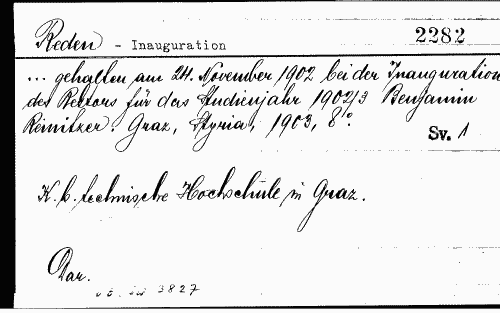 Reden - Inauguration
2282
... gehalten am 24. November 1902 bei der Inauguration
des Rektors für das Studienjahr 1902/3 Benjamin
Reinitzer. Graz, Styria, 1903, 8°.
Sv. 1
K. k. technische Hochschule in Graz.
Dar.
3827